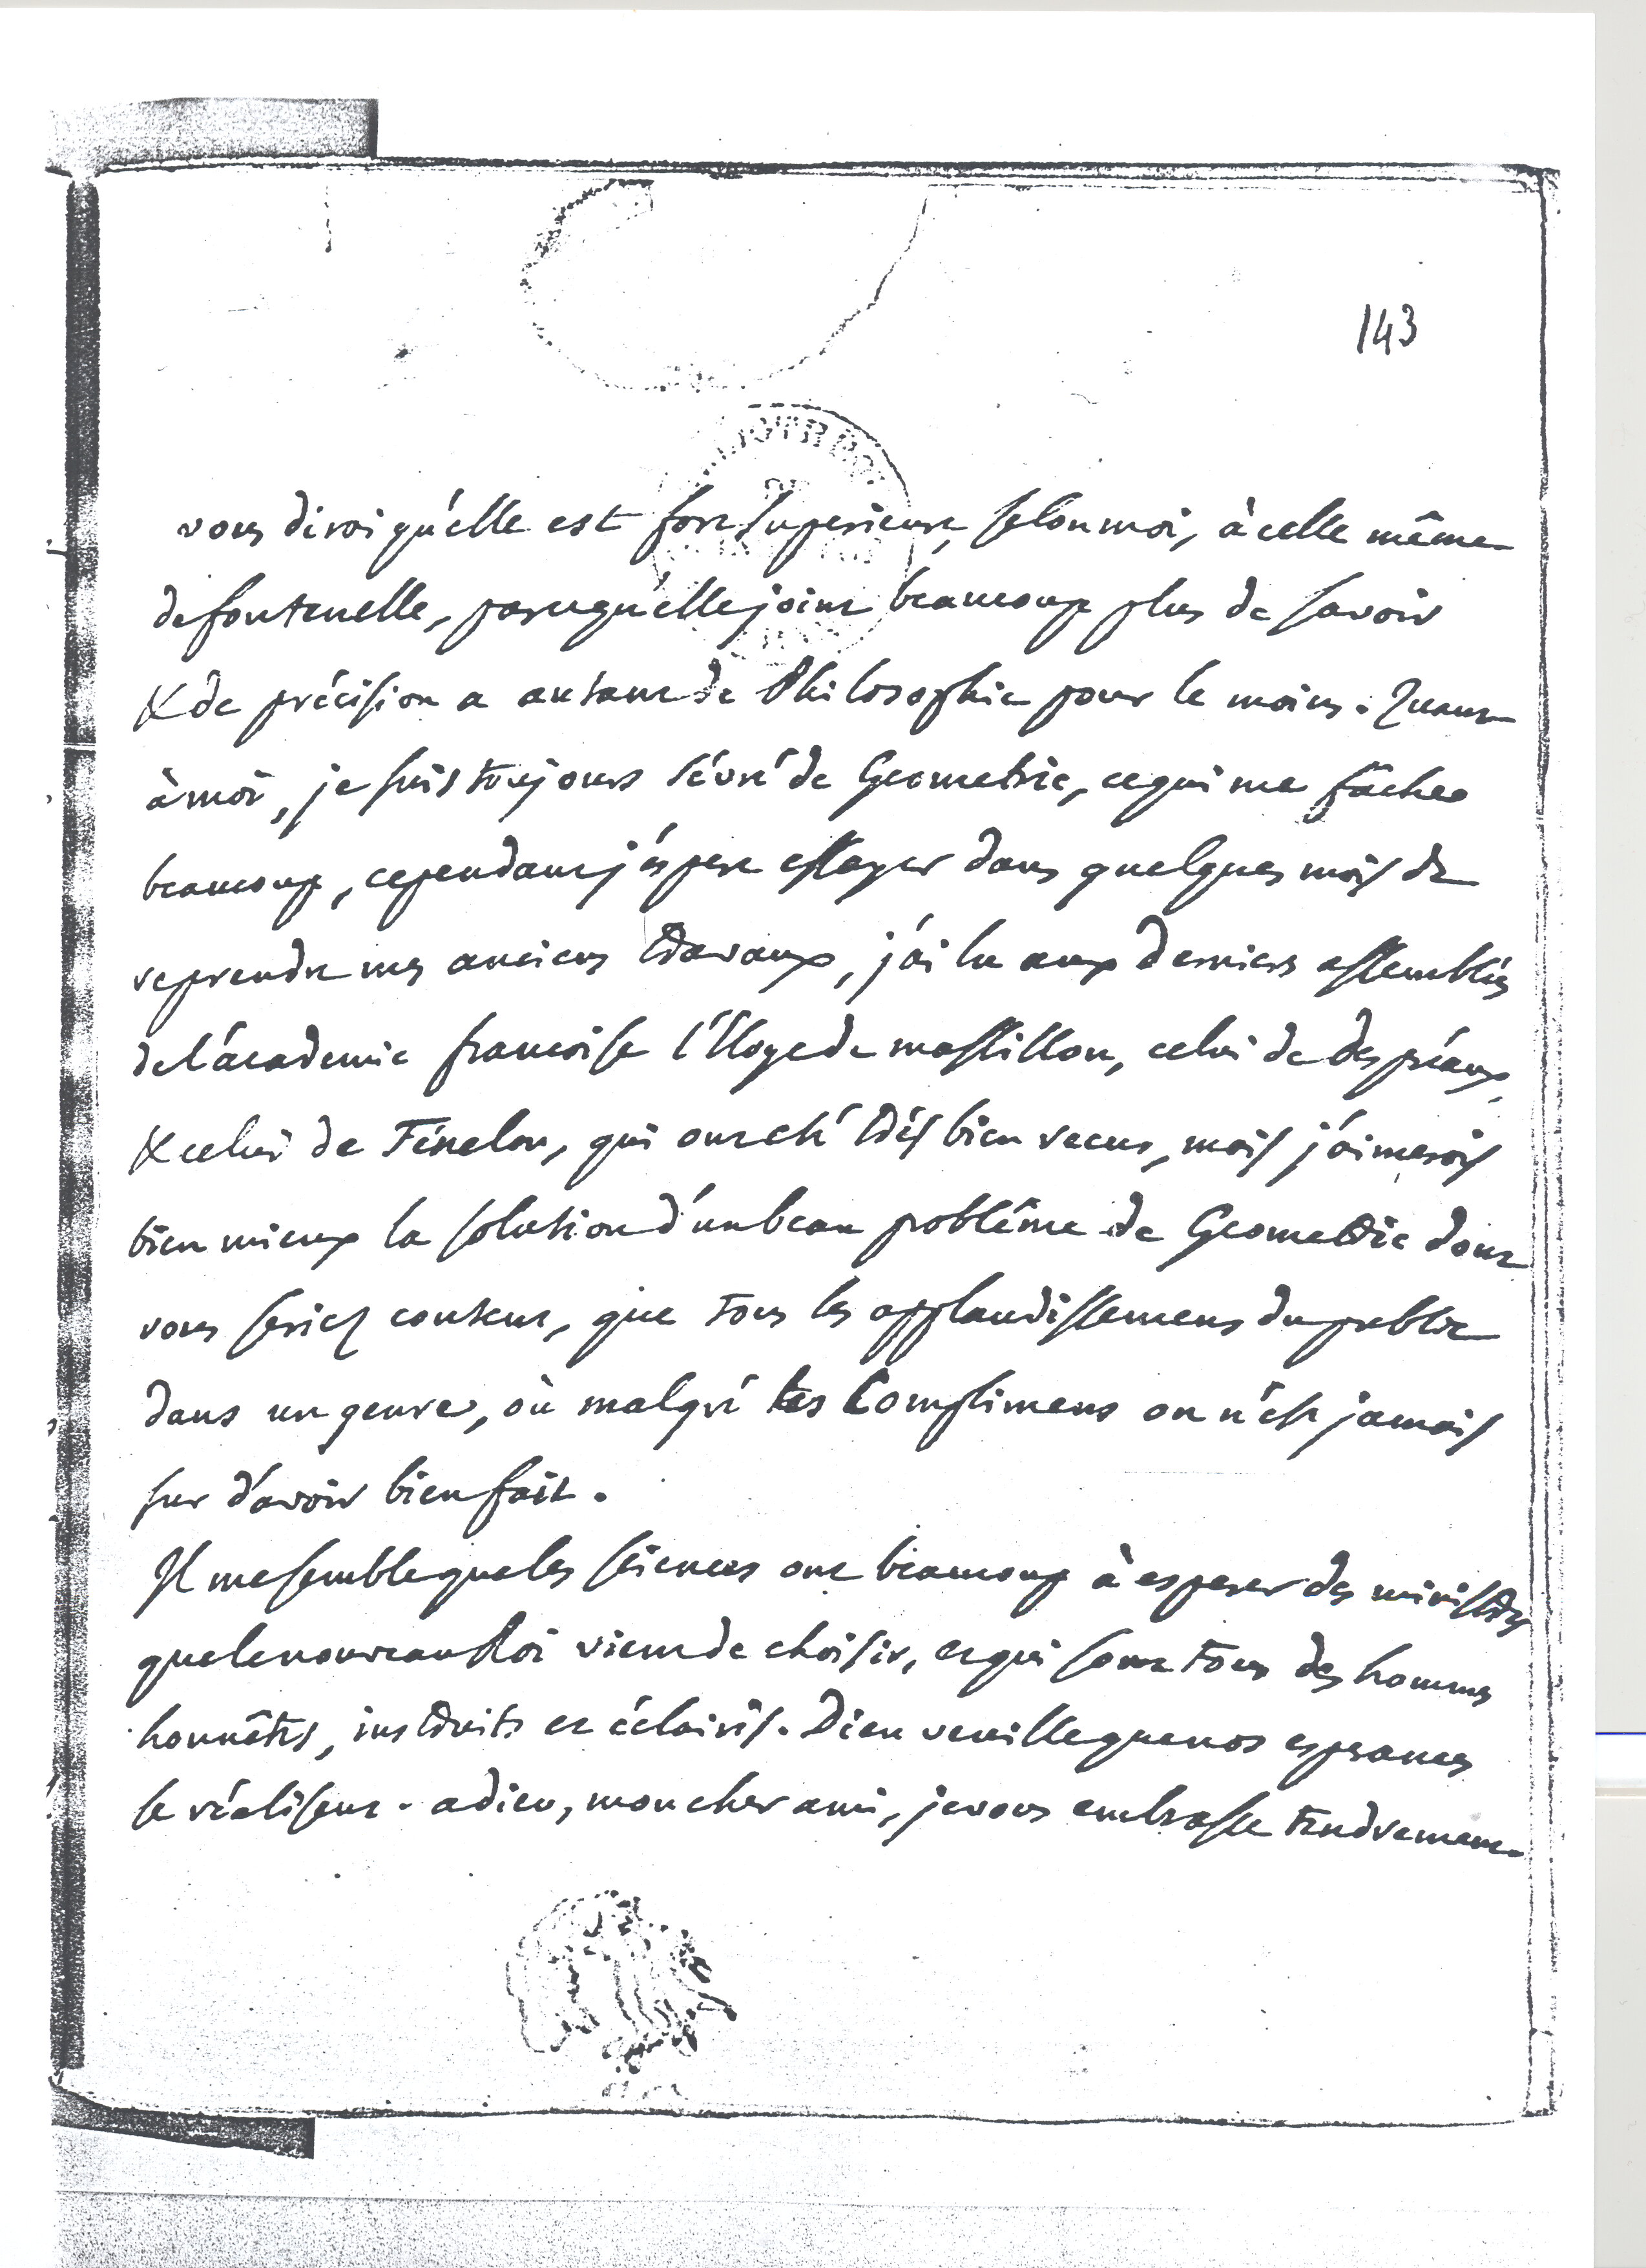 143
vous dirois qu'elle est fort superieure, selon moi, à celle même
de fontenelle, parcequ'elle joint beaucoup plus de savoir
& de précision a autant de Philosophie pour le moins. Quant
à moi, je suis toujours sévré de Geometrie, ce qui me fâche
beaucoup, cependant j'éspere essayer dans quelques mois de
reprendre mes anciens travaux, j'ai lu aux dernieres assemblées
de l'académie francoise l'Eloge de massillon, celui de des préaux,
& celui de Fénelon, qui ont eté très bien recus, mais j'aimerois
bien mieux la solution d'un beau problême de Geometrie dont
vous seriez content, que tous les applaudissemens du public
dans un genre, où malgré les Complimens on n'est jamais
sur d'avoir bien fait.
Il me semble que les sciences ont beaucoup à esperer des ministres
que le nouveau Roi vient de choisir, et qui sont tous des hommes
honnêtes, instruits et éclairés. Dieu veuille que nos esperances
se réalisent. adieu, mon cher ami, je vous embrasse tendrement.